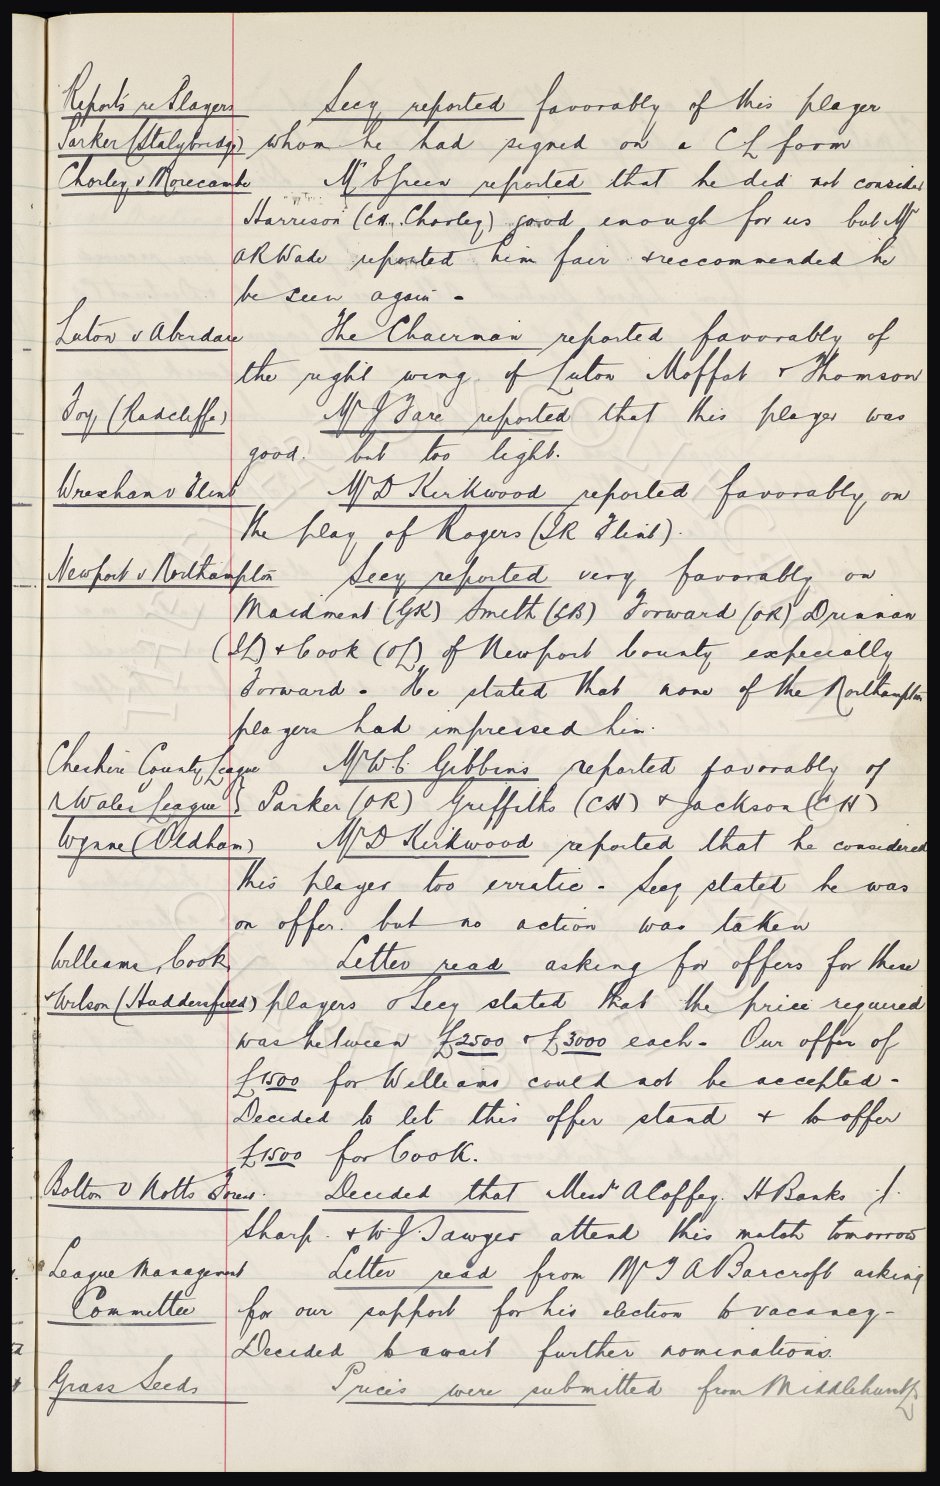 Reports re Players Secy reported favorably of this player
Parker (Stalybridge) whom he had signed on a CL form
Chorley v Morecambe Mr Green reported that he did not consider
Harrison (CH. Chorley) good enough for us but Mr
A R Wade reported him fair & reccommended he
be seen again -
Luton v Aberdare The Chairman reported favorably of
the right wing of Luton Moffat & Thomson
Foy (Radcliffe) Mr J Fare reported that this player was
good. but too light.
Wrexham v Flint Mr D Kirkwood reported favorably on
the play of Rogers (IR Flint).
Newport v Northampton Secy reported very favorably on
Maidment (GK) Smith (LB) Forward (OR) Drinnan
(IL) & Cook (OL) of Newport County especially
Forward - He stated that none of the Northampton
players had impressed him.
Cheshire County League Mr W.C. Gibbins reported favorably of
& Wales League } Parker (OR) Griffiths (CH) & Jackson (CH)
Wynne (Oldham) Mr D Kirkwood reported that he considered
this player too erratic - Secy stated he was
on offer. but no action was taken
Williams, Cook, Letter read asking for offers for these
& Wilson (Huddersfield) players & Secy stated that the price required
was between £2500 & £3000 each - Our offer of
£1500 for Williams could not be accepted -
Decided to let this offer stand & to offer
£1500 for Cook.
Bolton v Notts Forest. Decided that Messrs A Coffey. H Banks J.
Sharp. & W.J. Sawyer attend this match tomorrow
League Management Letter read from Mr T A Barcroft asking
Committee for our support for his election to vacancy -
Decided to await further nominations.
Grass Seeds Prices were submitted from Middlehursts